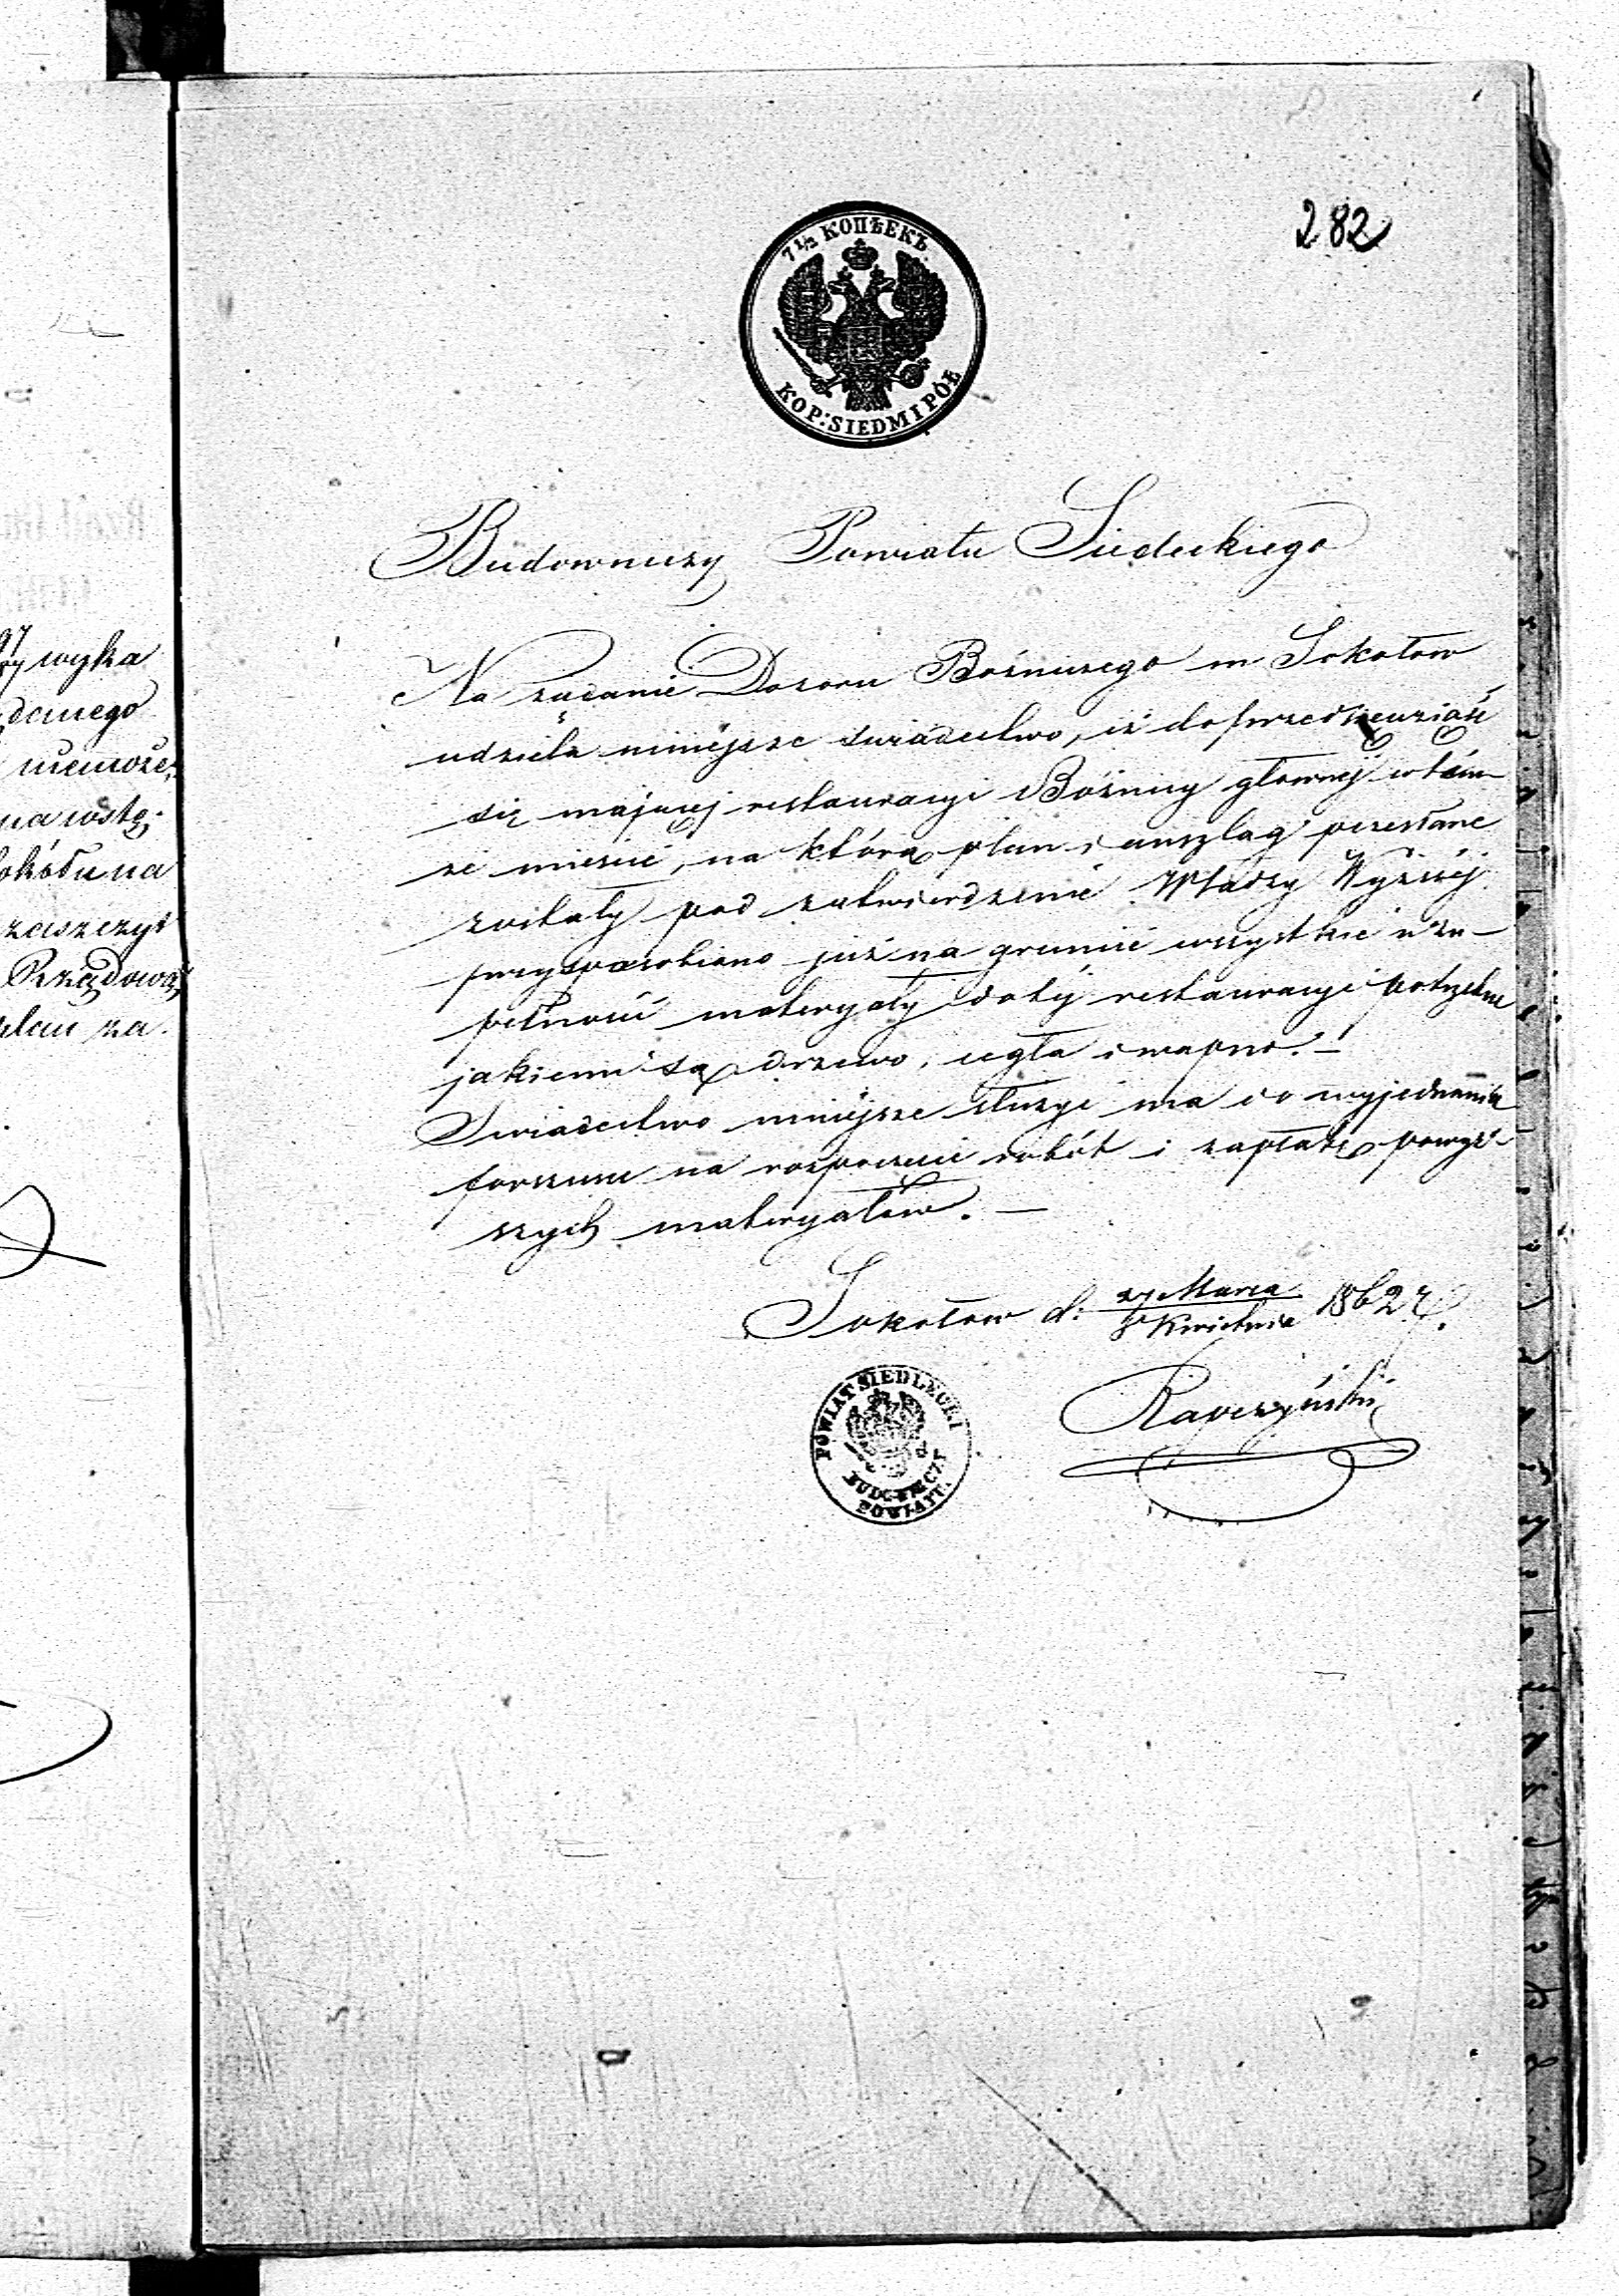 282
7½ КОПѢЕКЪ
KOP: SIEDM I PÓŁ
Budowniczy Powiatu Siedleckiego
Na żądanie Dozoru Bóżniczego m Sokołów
udziela niniejsze świadectwo, iż do przedsięwziąść
się mającej restauracyi Bóżnicy głównej w tém-
że mieście, na którą plan i anszlag przesłane
zostały pod zatwierdzenie Władzy Wyższéj
przysposobiono już na gruncie wszystkie w zu-
pełności materyały do téj restauracyi potrzebne
jakiemi są drzewo, cegła i wapno. —
Świadectwo niniejsze służyć ma do wyjednania
forszusu na rozpoczęcie robót i zapłatę powyż-
szych materyałów. —
Sokołow d. Marca
Kwietnia 1862 r.
POWIAT SIEDLECKI
BUDOWNICZY
POWIATU
wyka
danego
niemoże
na wstę-
okółu na
zaszczyt
Rządowa
plan za